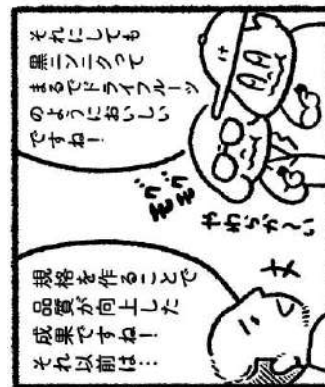 それにしても
黒ニンニクって
まるでドライフルーツ
のようにおいしい
ですね！
モグモグ
やわらか〜い
規格を作ることで
品質が向上した
成果ですね！
それ以前は…